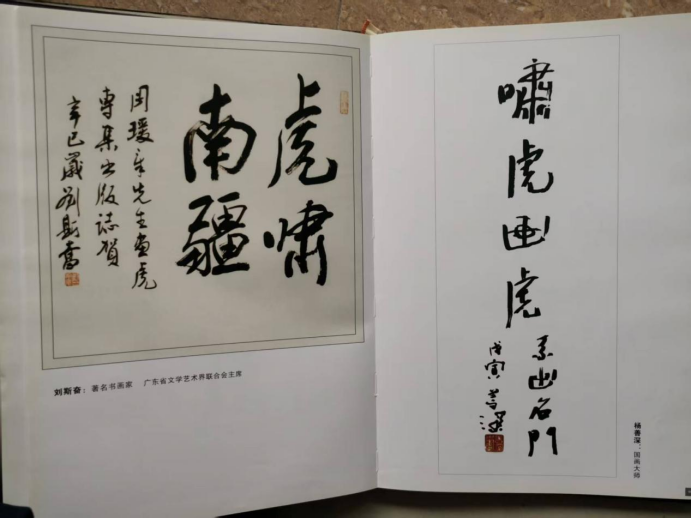 虎啸
南疆
周瑗章先生画虎
專集出版誌賀
辛巳歲劉斯奮
刘斯奋：著名书画家 广东省文学艺术界联合会主席
嘯虎画虎
系出名門
戊寅善深
杨善深：国画大师